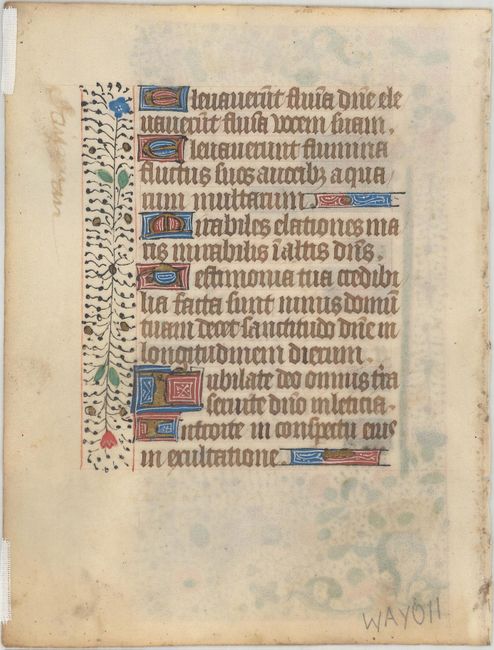 Eleuauerūt flumīa dn̄e ele
uauerūt flumīa vocem suam.
Eleuauerunt flumina
fluctus suos a uocibꝫ aqua
rum multarum
Mirabiles elationes ma
ris mirabilis ī altis dn̄s.
Testimonia tua credibi
lia facta sunt nimis domū
tuam decet sanctitudo dn̄e in
longitudinem dierum.
Iubilate deo omnis t̄ra
seruite dn̄o in leticia.
Introite in conspectu eius
in exultatione
WAY011